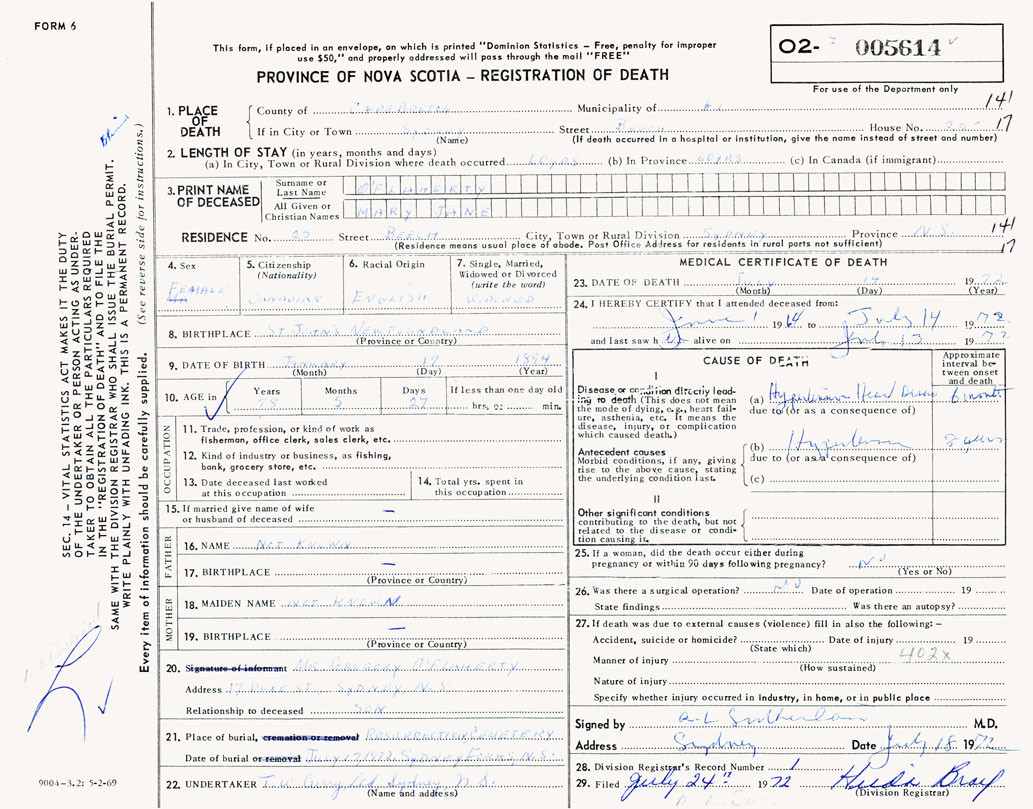 FORM 6
This form, if placed in an envelope, on which is printed "Dominion Statistics – Free, penalty for improper
use $50," and properly addressed will pass through the mail "FREE"
PROVINCE OF NOVA SCOTIA – REGISTRATION OF DEATH
O2- 005614
For use of the Department only
141
17
1. PLACE OF DEATH
County of CAPE BRETON Municipality of #1
If in City or Town SYDNEY Street BEECH House No. 22
(Name) (If death occurred in a hospital or institution, give the name instead of street and number)
2. LENGTH OF STAY (in years, months and days)
(a) In City, Town or Rural Division where death occurred 60 YRS (b) In Province 60 YRS (c) In Canada (if immigrant)
3. PRINT NAME OF DECEASED
Surname or Last Name O'FLAHERTY
All Given or Christian Names MARY JANE
RESIDENCE No. 22 Street BEECH City, Town or Rural Division SYDNEY Province N.S.
(Residence means usual place of abode. Post Office Address for residents in rural parts not sufficient)
141
17
4. Sex
FEMALE
5. Citizenship (Nationality)
CANADIAN
6. Racial Origin
ENGLISH
7. Single, Married, Widowed or Divorced (write the word)
WIDOWED
8. BIRTHPLACE ST JOHNS NEWFOUNDLAND
(Province or Country)
9. DATE OF BIRTH JANUARY 17 1894
(Month) (Day) (Year)
10. AGE in
Years Months Days If less than one day old
78 5 27 hrs. or min.
OCCUPATION
11. Trade, profession, or kind of work as
fisherman, office clerk, sales clerk, etc.
12. Kind of industry or business, as fishing,
bank, grocery store, etc.
13. Date deceased last worked
at this occupation
14. Total yrs. spent in
this occupation
15. If married give name of wife
or husband of deceased –
FATHER
16. NAME NOT KNOWN
17. BIRTHPLACE –
(Province or Country)
MOTHER
18. MAIDEN NAME NOT KNOWN
19. BIRTHPLACE –
(Province or Country)
20. Signature of informant MR. GREGORY O'FLAHERTY
Address 17 DUKE ST. SYDNEY N.S.
Relationship to deceased SON
21. Place of burial, cremation or removal RESURRECTION CEMETERY
Date of burial or removal JULY 17, 1972 SYDNEY FORKS, N.S.
22. UNDERTAKER T.W. Curry Ltd Sydney N.S.
(Name and address)
MEDICAL CERTIFICATE OF DEATH
23. DATE OF DEATH JULY 14 1972
(Month) (Day) (Year)
24. I HEREBY CERTIFY that I attended deceased from:
June 1 1964 to July 14 1972
and last saw her alive on July 13 1972
CAUSE OF DEATH
Approximate interval between onset and death
I
Disease or condition directly leading to death (This does not mean
the mode of dying, e.g., heart failure, asthenia, etc. It means the
disease, injury, or complication
which caused death.)
(a) Hypertensive Heart Disease 6 months
due to (or as a consequence of)
Antecedent causes
Morbid conditions, if any, giving
rise to the above cause, stating
the underlying condition last.
(b) Hypertension 8 years
due to (or as a consequence of)
(c)
II
Other significant conditions
contributing to the death, but not
related to the disease or condition causing it.
25. If a woman, did the death occur either during
pregnancy or within 90 days following pregnancy? NO
(Yes or No)
26. Was there a surgical operation? NO Date of operation 19
State findings Was there an autopsy?
27. If death was due to external causes (violence) fill in also the following: –
Accident, suicide or homicide? Date of injury 19
(State which)
402x
Manner of injury
(How sustained)
Nature of injury
Specify whether injury occurred in industry, in home, or in public place
Signed by A.L. Sutherland M.D.
Address Sydney Date July 18 1972
28. Division Registrar's Record Number 1
29. Filed July 24th 1972 Hilda Bray
(Division Registrar)
SEC. 14 – VITAL STATISTICS ACT MAKES IT THE DUTY
OF THE UNDERTAKER OR PERSON ACTING AS UNDERTAKER
TO OBTAIN ALL THE PARTICULARS REQUIRED
IN THE "REGISTRATION OF DEATH" AND TO FILE THE
SAME WITH THE DIVISION REGISTRAR WHO SHALL ISSUE THE BURIAL PERMIT.
WRITE PLAINLY WITH UNFADING INK. THIS IS A PERMANENT RECORD.
Every item of information should be carefully supplied. (See reverse side for instructions.)
9004–3.2: 5-2-69